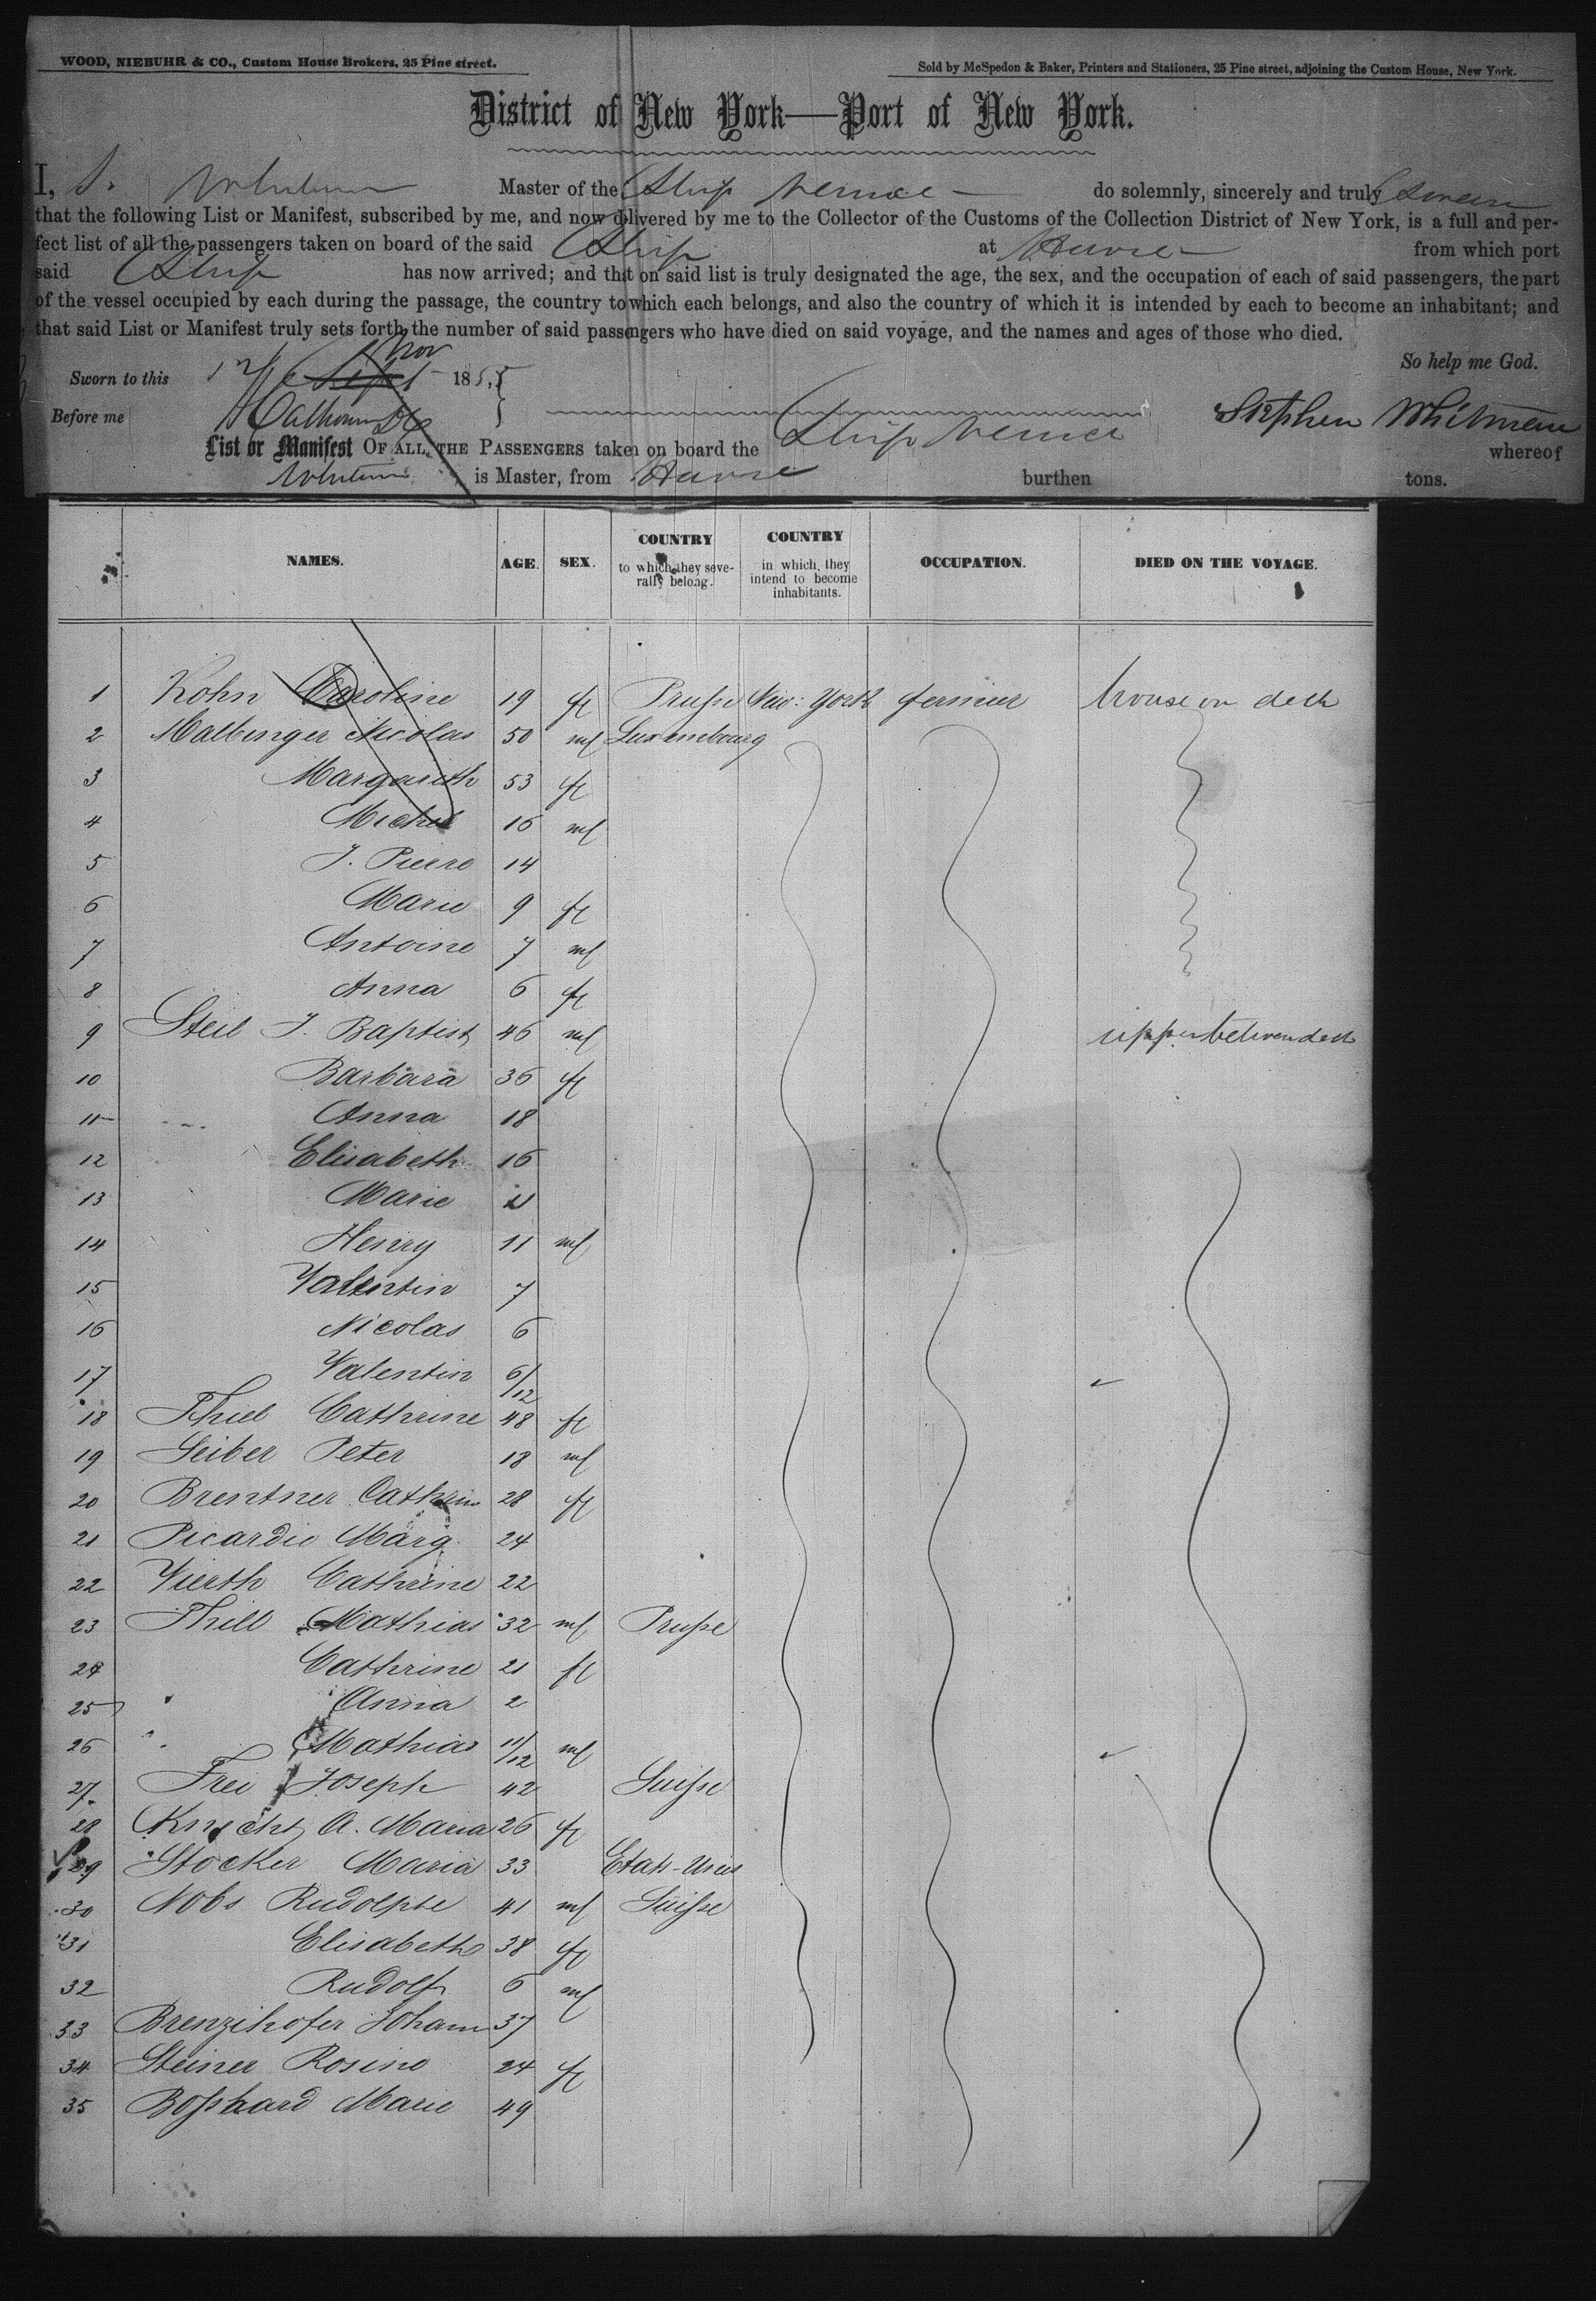 WOOD, NIEBUHR & CO., Custom House Brokers, 25 Pine street.
Sold by McSpedon & Baker, Printers and Stationers, 25 Pine street, adjoining the Custom House, New York.
District of New York—Port of New York.
I, S. Whitman Master of the Ship Venice do solemnly, sincerely and truly Swear
that the following List or Manifest, subscribed by me, and now delivered by me to the Collector of the Customs of the Collection District of New York, is a full and per-
fect list of all the passengers taken on board of the said Ship at Havre from which port
said Ship has now arrived; and that on said list is truly designated the age, the sex, and the occupation of each of said passengers, the part
of the vessel occupied by each during the passage, the country to which each belongs, and also the country of which it is intended by each to become an inhabitant; and
that said List or Manifest truly sets forth the number of said passengers who have died on said voyage, and the names and ages of those who died.
So help me God.
Sworn to this 17 Sept Nov 185
Before me Calhoun Stephen Whitman
List or Manifest OF ALL THE PASSENGERS taken on board the Ship Venice whereof
Whitman is Master, from Havre burthen tons.
NAMES. AGE. SEX. COUNTRY to which they seve-rally belong. COUNTRY in which they intend to become inhabitants. OCCUPATION. DIED ON THE VOYAGE.
1 Kohn Caroline 19 f Prusse New York fermier house on deck
2 Malbinger Nicolas 50 m Luxembourg
3 Margareth 53 f
4 Michel 16 m
5 J. Pierre 14
6 Marie 9 f
7 Antoine 7 m
8 Anna 6 f
9 Steil J. Baptist 46 m upper between deck
10 Barbara 36 f
11 Anna 18
12 Elisabeth 16
13 Marie
14 Henry 11 m
15 Valentin 7
16 Nicolas 6
17 Valentin 6/12
18 Thiel Cathrine 48 f
19 Seiber Peter 18 m
20 Brentner Cathrine 28 f
21 Picardie Marg. 24
22 Vierth Cathrine 22
23 Thill Mathias 32 m Prusse
24 Cathrine 21 f
25 " Anna 2
26 " Mathias 11/12 m
27 Frei Joseph 42 Suisse
28 Knecht A. Maria 26 f
29 Stocker Maria 33 Etats-Unis
30 Nobs Rudolphe 41 m Suisse
31 Elisabeth 38 f
32 Rudolf 6 m
33 Brenzihofer Johann 37
34 Steiner Rosine 24 f
35 Boßhard Marie 49